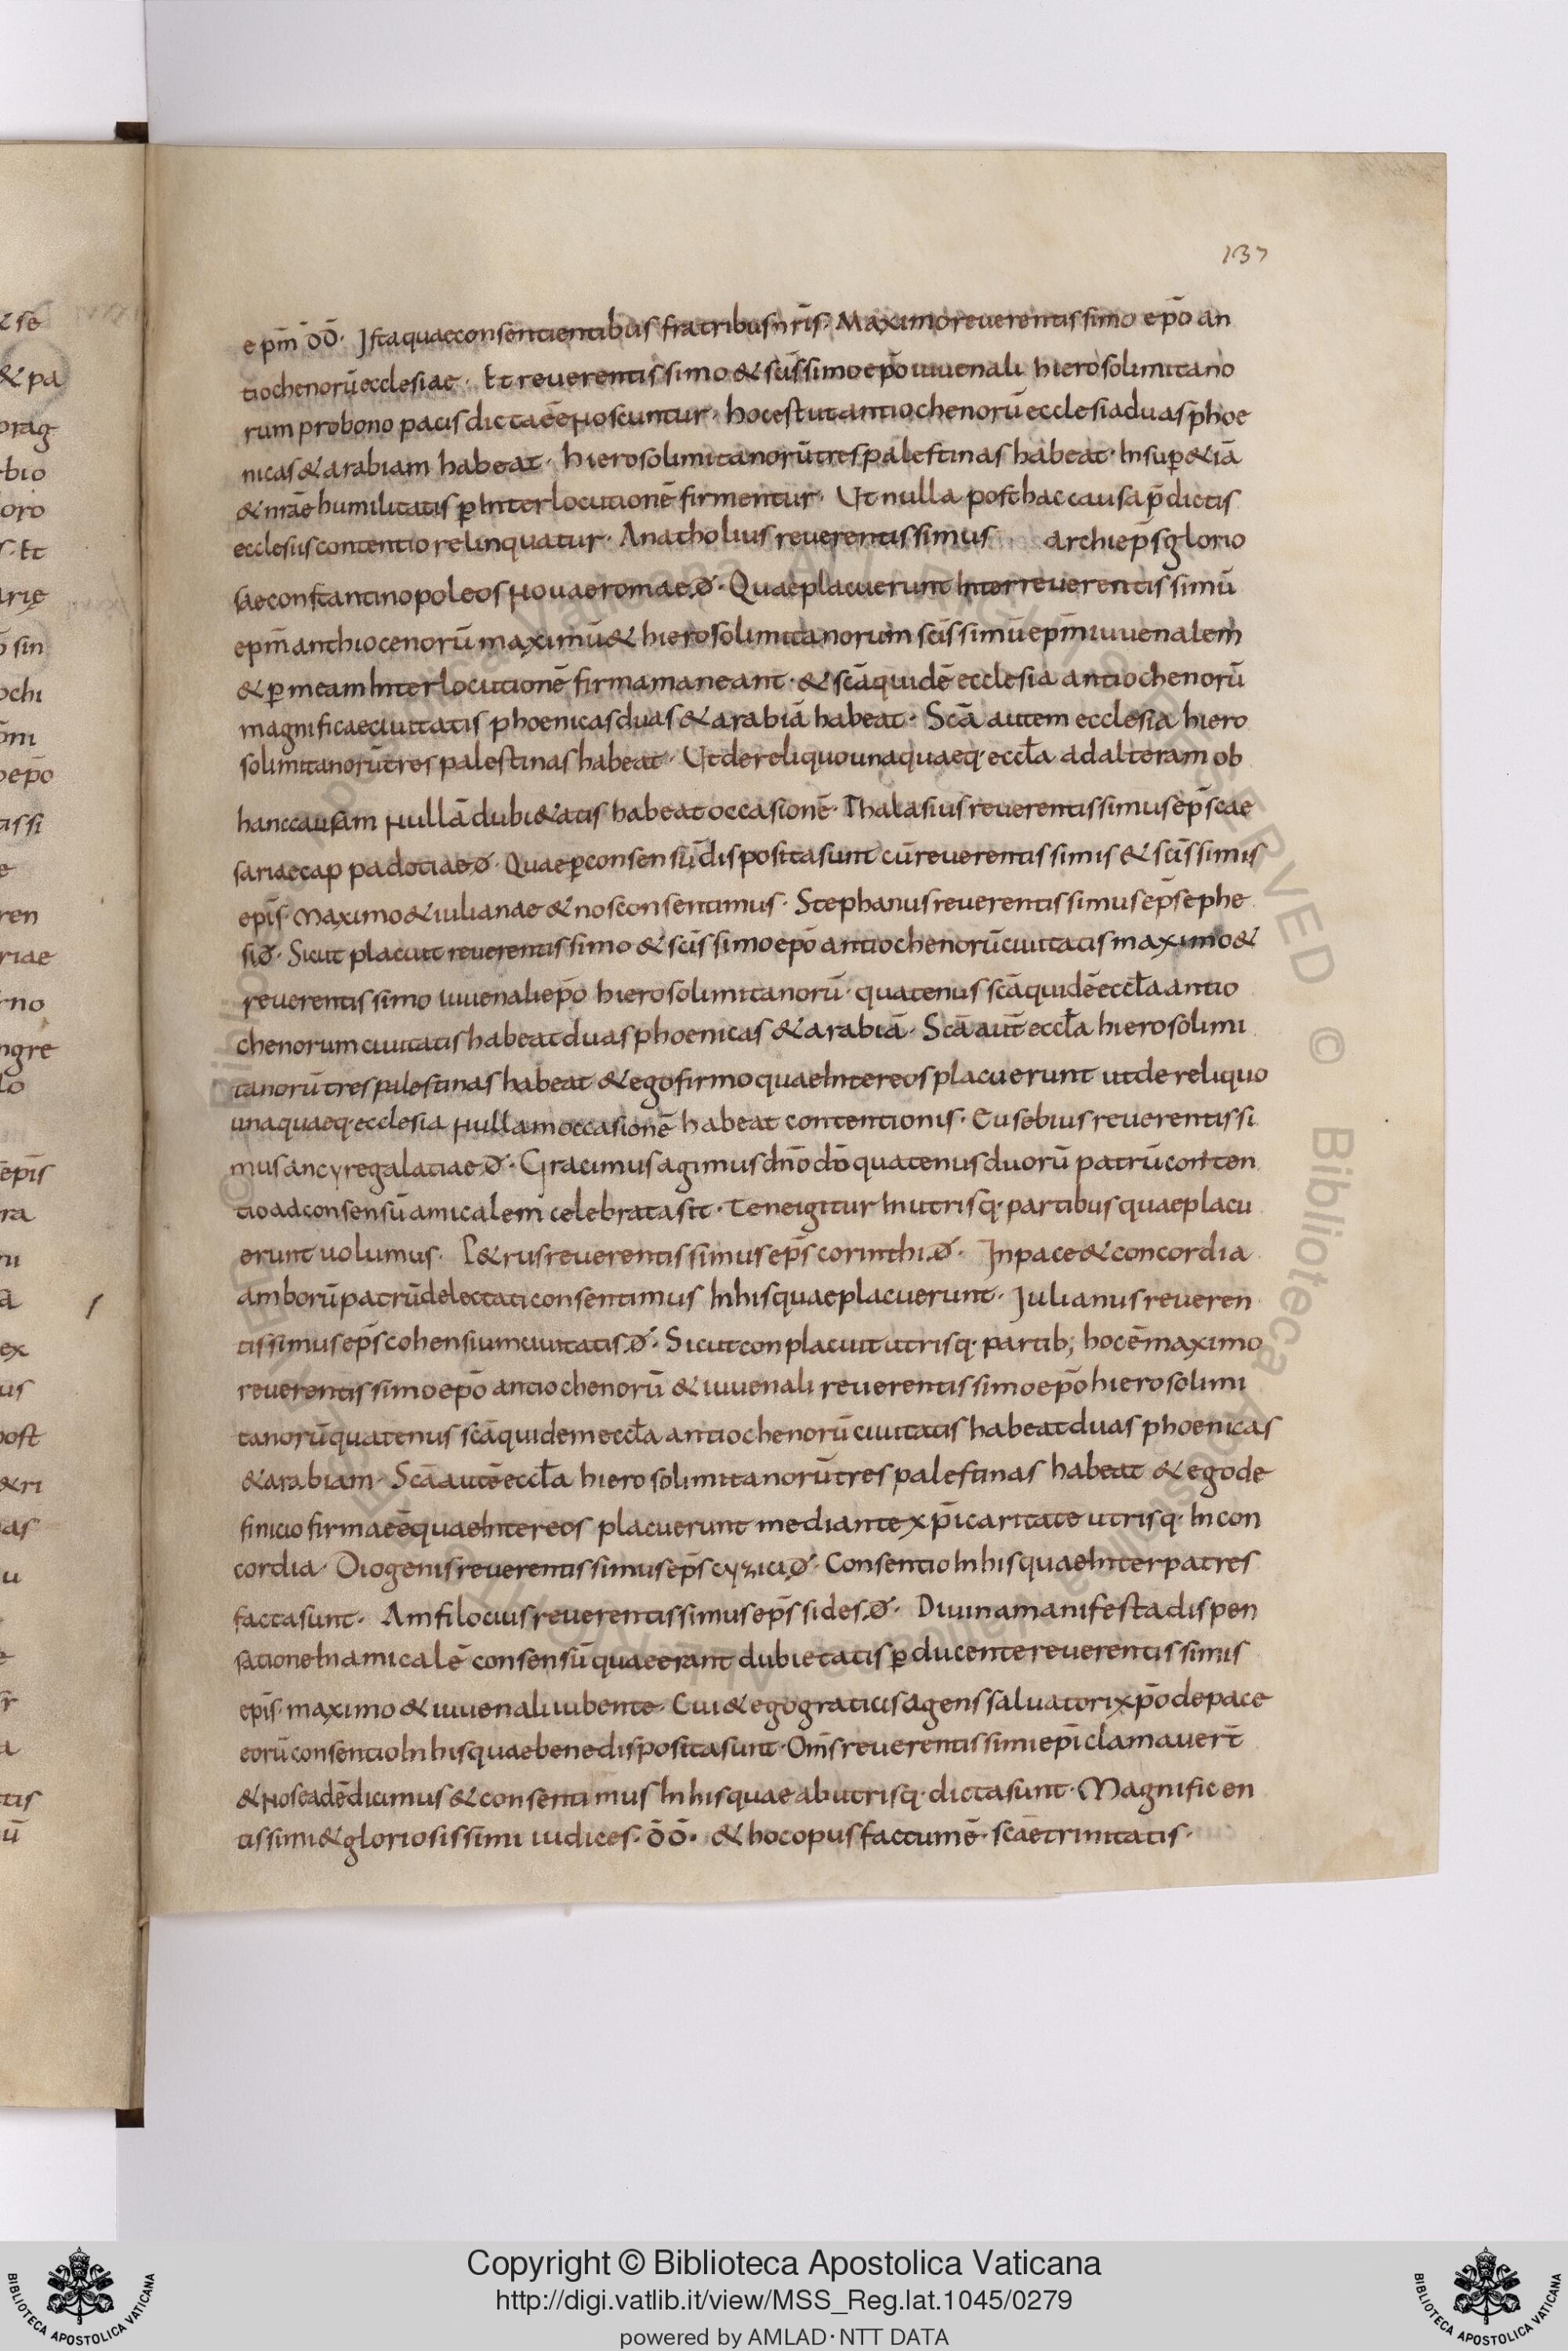 137
epm̄ ōō· Ista quae consentientibus fratribus nr̄is· Maximo reuerentissimo epō an
tiochenorū ecclesiae· Et reuerentissimo & sc̄issimo epō iuuenali hierosolimitano
rum pro bono pacis dicta ēē noscuntur· hoc est ut antiochenorū ecclesia duas phoe
nicas & arabiam habeat· hierosolimitanorū tres palestinas habeat· Insup & iā
& nrāe humilitatis p̱ interlocutionē firmentur· Ut nulla posthac causa p̄dictis
ecclesiis contentio relinquatur· Anatholius reuerentissimus archiep̄s glorio
sae constantinopoleos nouae romae đ· Quae placuerunt inter reuerentissimū
epm̄ anthiocenorū maximū & hierosolimitanorum sc̄issimū epm̄ iuuenalem
& p̱ meam interlocutionē firma maneant· & scā quidē ecclesia antiochenorū
magnificae ciuitatis phoenicas duas & arabiā habeat· Scā autem ecclesia hiero
solimitanorū tres palestinas habeat· Ut de reliquo unaquaeq· eccła ad alteram ob
hanc causam nullā dubi&atis habeat occasionē· Thalasius reuerentissimus ep̄s cae
sariae cappadotiae đ· Quae p̱ consensū disposita sunt cū reuerentissimis & sc̄issimis
epīs· Maximo & iulianae & nos consentimus· Stephanus reuerentissimus ep̄s ephe
si đ· Sicut placuit reuerentissimo & sc̄issimo epō antiochenorū ciuitatis maximo &
reuerentissimo iuuenali epō hierosolimitanorū· quatenus scā quidē eccła antio
chenorum ciuitatis habeat duas phoenicas & arabiā· Scā autē eccła hierosolimi
tanorū tres palestinas habeat & ego firmo quae inter eos placuerunt ut de reliquo
unaquaeq· ecclesia nullam occasionē habeat contentionis· Eusebius reuerentissi
mus ancyre galatiae đ· Gracimus agimus dn̄o dō quatenus duorū patrū conten
tio ad consensū amicalem celebrata sit· Teneigitur in utrisq· partibus quae placu
erunt uolumus· P&rus reuerentissimus ep̄s corinthi đ· In pace & concordia
amborū patrū delectati consentimus in his quae placuerunt· Iulianus reueren
tissimus ep̄s cohensium ciuitatis đ· Sicut conplacuit utrisq· partib; hoc ē maximo
reuerentissimo epō antiochenorū & iuuenali reuerentissimo epō hierosolimi
tanorū quatenus scā quidem eccła antiochenorū ciuitatis habeat duas phoenicas
& arabiam· Scā autē eccła hierosolimitanorū tres palestinas habeat & ego de
finicio firma eē quae inter eos placuerunt mediante xp̄i caritate utrisq· in con
cordia· Diogenis reuerentissimus ep̄s cyzici đ· Consentio in his quae inter patres
facta sunt· Amfilocius reuerentissimus ep̄s sides đ· Diuina manifesta dispen
satione in amicalē consensū quae erant dubietatis p̱ducente reuerentissimis
epīs· maximo & iuuenali iubente· Cui & ego graticis agens saluatori xp̄o de pace
eorū consentio in his quae bene disposita sunt· Om̄s reuerentissimi epī clamauer̄t
& nos eadē dicimus & consentimus in his quae ab utrisq· dicta sunt· Magnificen
tissimi & gloriosissimi iudices· ōō· & hoc opus factum ē· scāe trinitatis·
Copyright © Biblioteca Apostolica Vaticana
http://digi.vatlib.it/view/MSS_Reg.lat.1045/0279
powered by AMLAD·NTT DATA
BIBLIOTECA APOSTOLICA VATICANA
BIBLIOTECA APOSTOLICA VATICANA